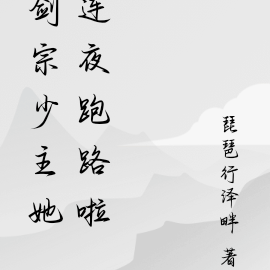 剑宗少主她
连夜跑路啦
琵琶行泽畔 著